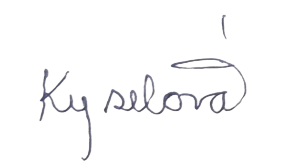 Kyselová